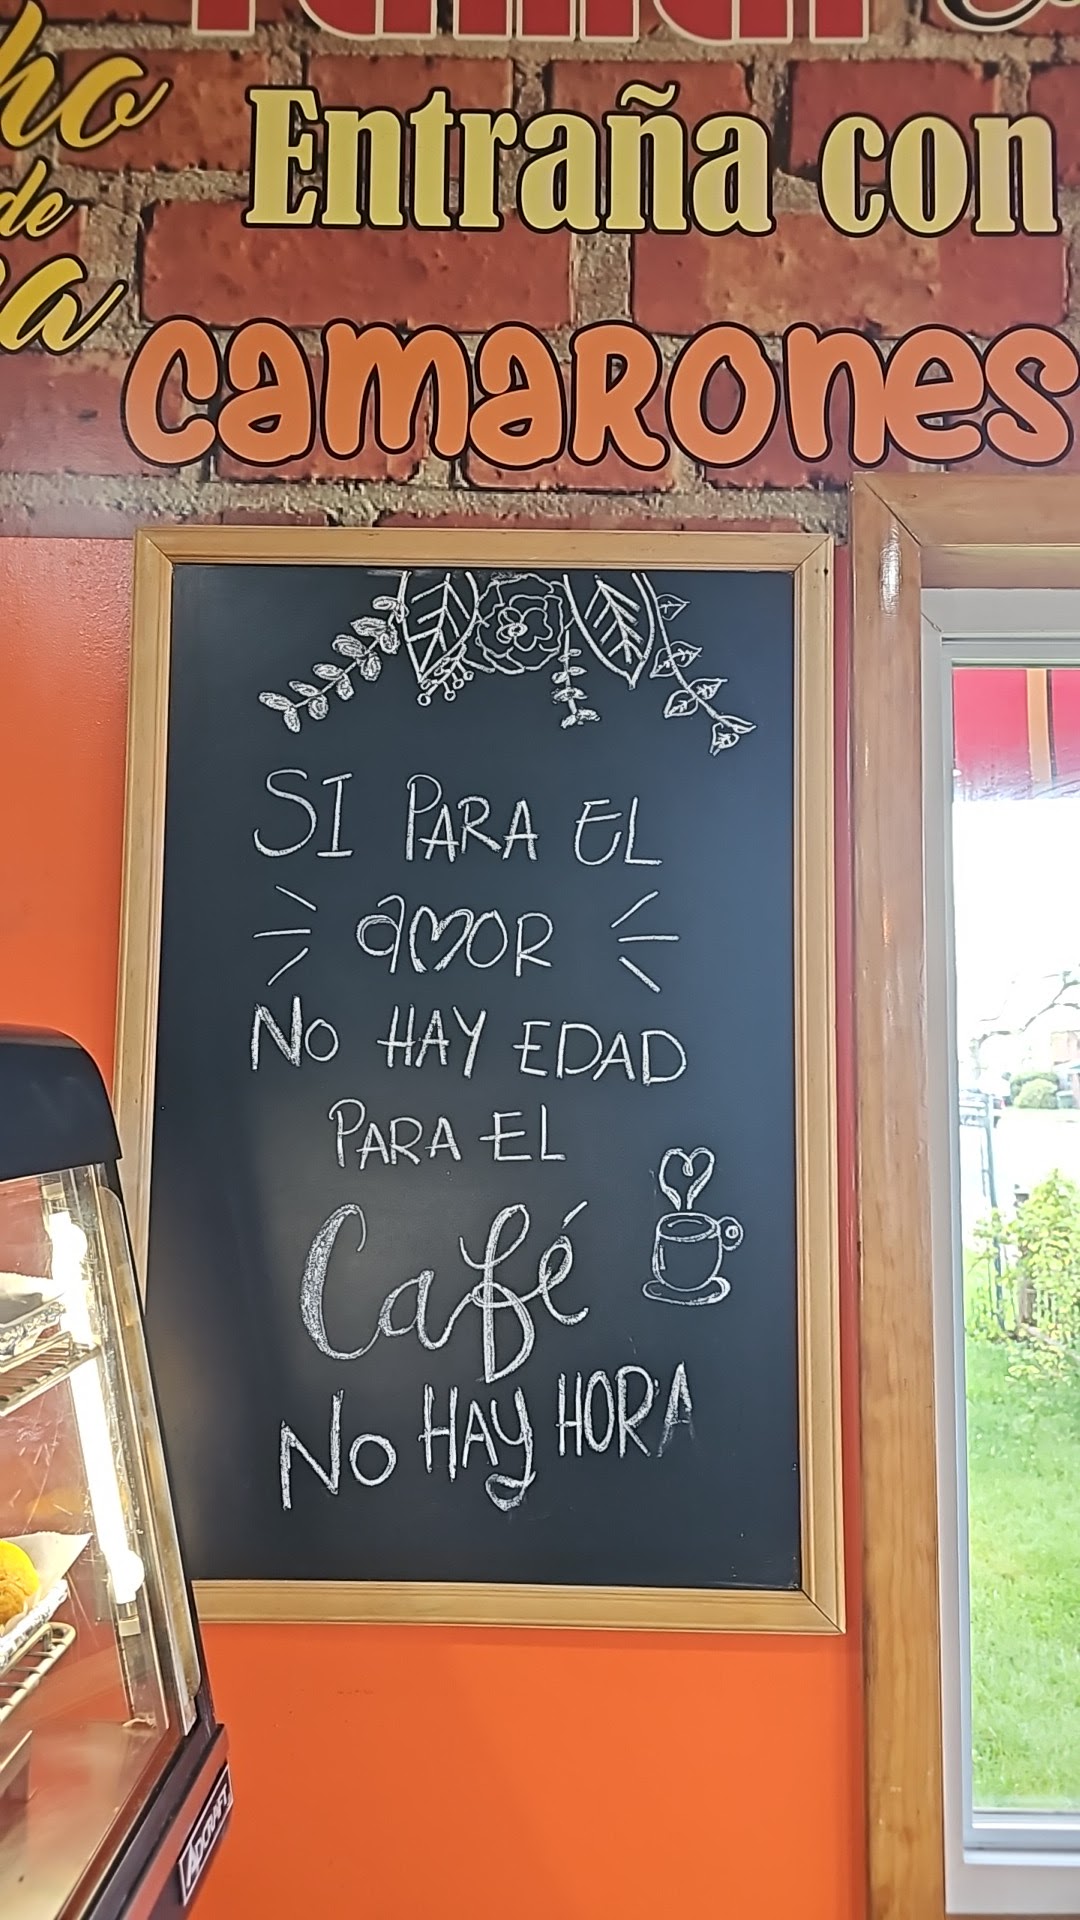 de
Entraña con
Camarones
SI PARA EL
AMOR
NO HAY EDAD
PARA EL
Café
NO HAY HORA
ADCRAFT